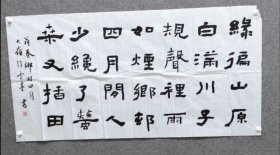 綠徧山原
白滿川子
規聲裡雨
如煙鄉邨
四月閒人
少纔了蠶
桑又插田
翁卷鄉村四月